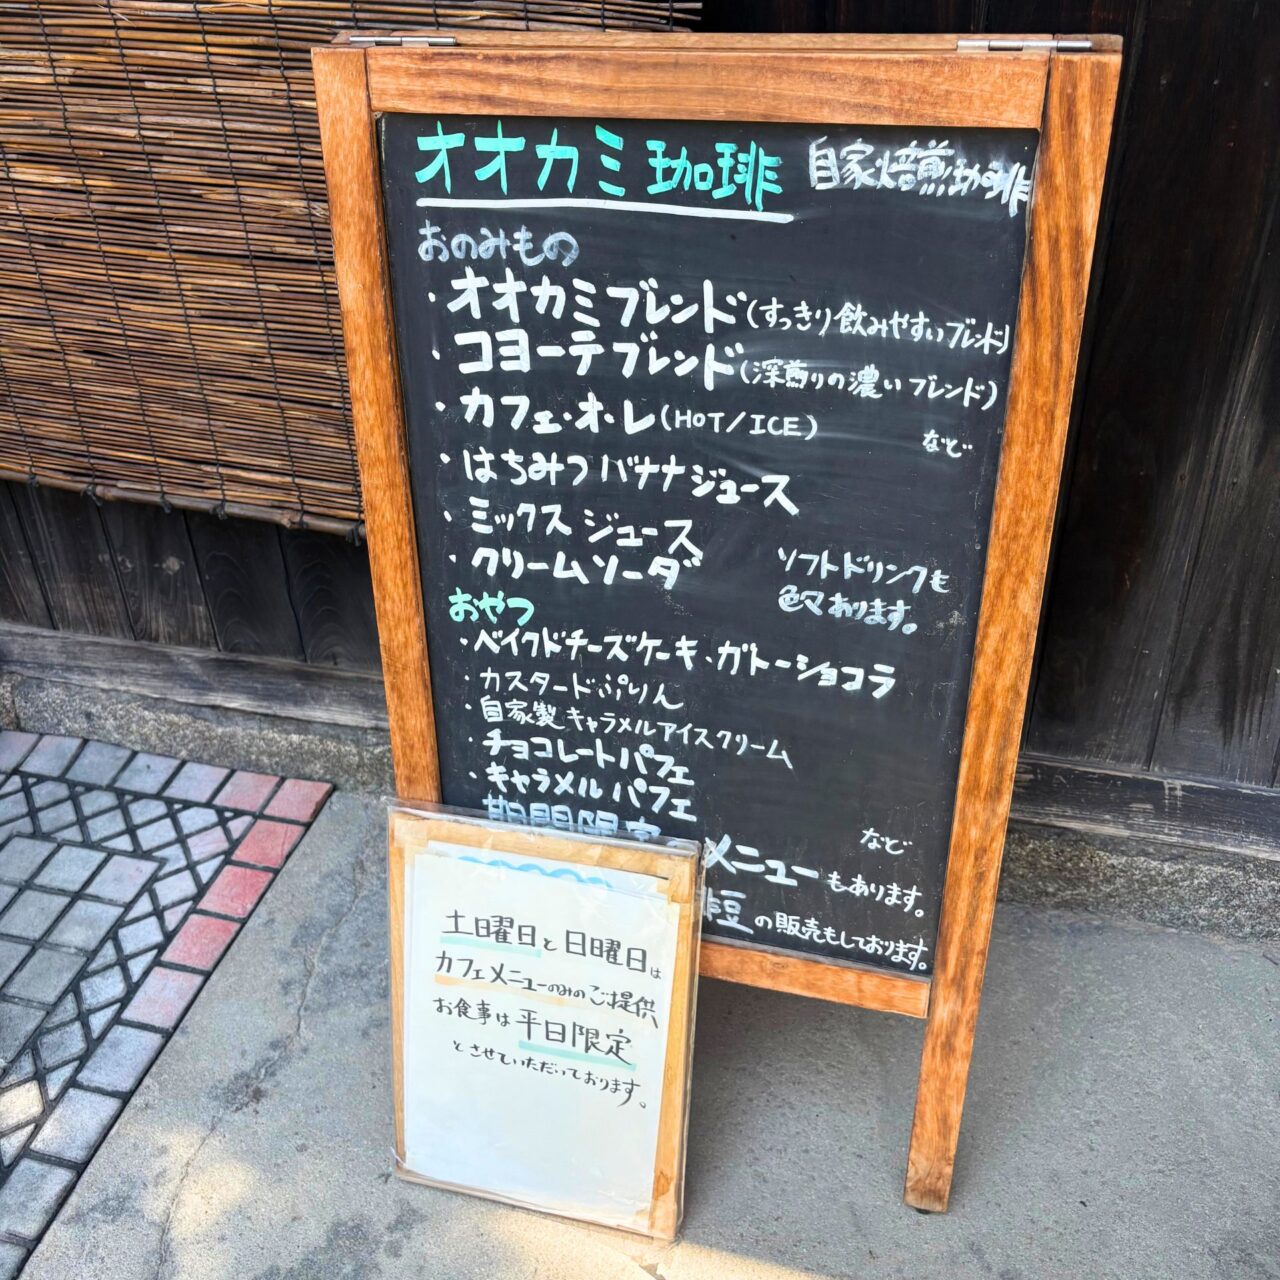 オオカミ珈琲 自家焙煎珈琲
おのみもの
・オオカミブレンド(すっきり飲みやすいブレンド)
・コヨーテブレンド(深煎りの濃いブレンド)
・カフェ・オ・レ(HOT/ICE)
など
・はちみつバナナジュース
・ミックスジュース
・クリームソーダ
ソフトドリンクも
色々あります。
おやつ
・ベイクドチーズケーキ・ガトーショコラ
・カスタードぷりん
・自家製キャラメルアイスクリーム
・チョコレートパフェ
・キャラメルパフェ
など
期間限定 メニューもあります。
豆の販売もしております。
土曜日と日曜日は
カフェメニューのみのご提供
お食事は平日限定
とさせていただいております。